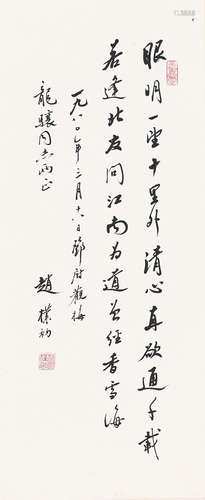 眼明一望十里外清心直欲通千載
若逢北友問江南為道曾經香雪海
一九八〇年三月十六日鄧尉觀梅
龍驤同志兩正
趙樸初